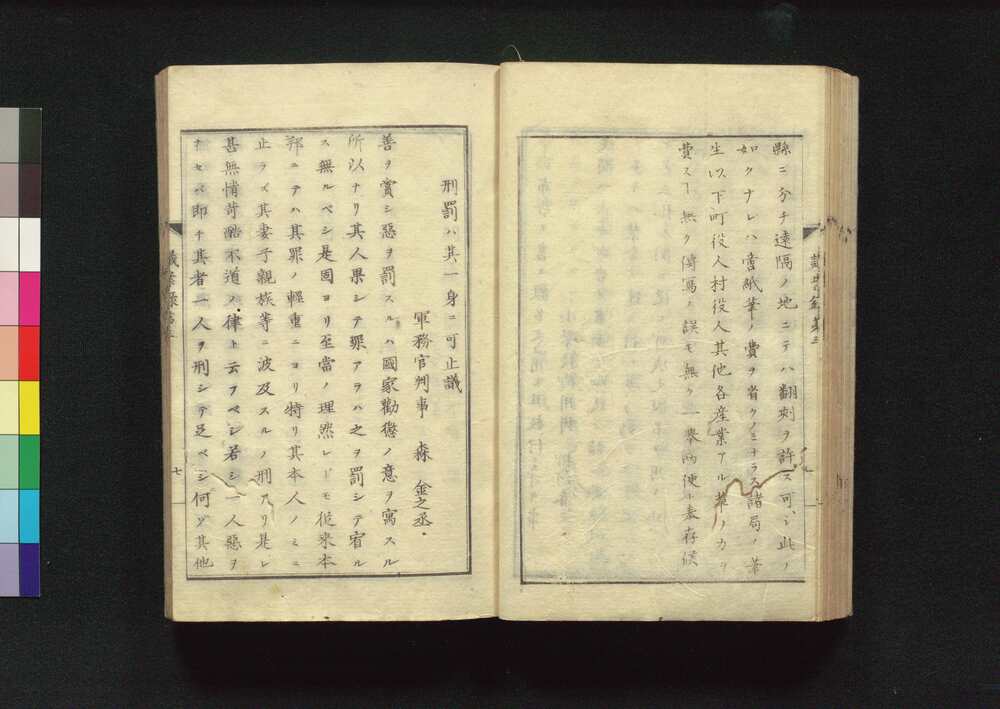 縣ニ分チ遠隔ノ地ニテハ翻刻ヲ許ス可シ此ノ
如クナレハ啻紙筆ノ費ヲ省クノミナラス諸局ノ筆
生以下町役人村役人其他各産業アル輩ノカヲ
費スヿ無ク傳寫ノ誤モ無ク一擧兩便ト奉存候
刑罰ハ其一身ニ可止議
軍務官判事 森 金之丞
善ヲ賞シ惡ヲ罰スルハ國家勸懲ノ意ヲ寓スル
所以ナリ其人果シテ罪アラハ之ヲ罰シテ宥ル
ス無ルベシ是固ヨリ至當ノ理然レドモ從來本
邦ニテハ其罪ノ輕重ニヨリ特リ其本人ノミニ
止ラズ其妻子親族等ニ波及スルノ刑アリ是レ
甚無情苛酷不道ノ律ト云フベシ若シ一人惡ヲ
ナセバ即チ其者一人ヲ刑シテ足ベシ何ゾ其他
七